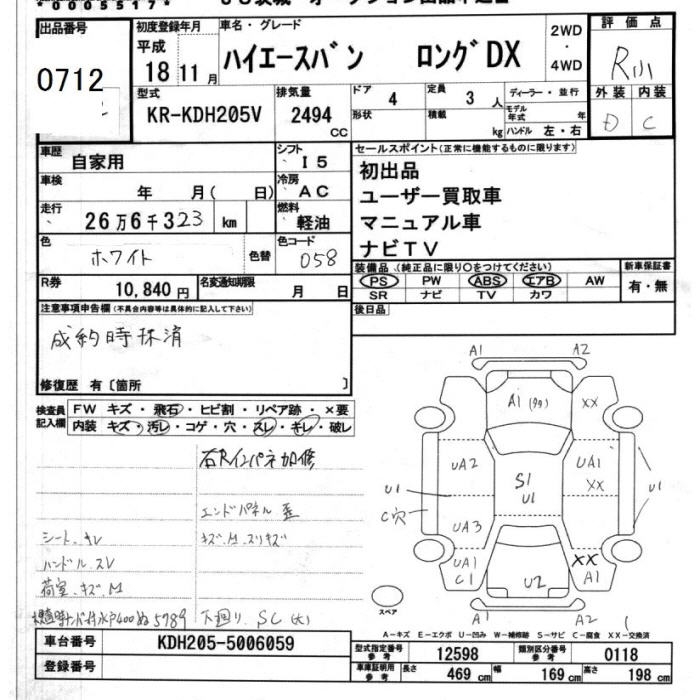 *0005517*
出品番号
0712
初度登録年月
平成
18 11 月
車名・グレード
ハイエースバン ロングDX
2WD
・
4WD
評価点
R小
外装 内装
D C
型式
KR-KDH205V
排気量
2494
CC
ドア
4
定員
3 人
ディーラー・並行
形状
積載
kg
モデル年式 年
ハンドル 左・右
車歴
自家用
シフト
I5
車検
年 月( 日)
冷房
AC
走行
26万6千323 km
燃料
軽油
色
ホワイト
色替
色コード
058
R券
10,840 円
名変通知期限
月 日
セールスポイント(正常に機能するものに限ります)
初出品
ユーザー買取車
マニュアル車
ナビTV
装備品 (純正品に限り〇をつけてください)
PS PW ABS エアB AW
SR ナビ TV カワ
新車保証書
有・無
後日品
注意事項申告欄(不具合内容等は具体的に記入して下さい)
成約時抹消
修復歴 有〔箇所 〕
検査員
記入欄
FW キズ・飛石・ヒビ割・リペア跡・×要
内装 キズ・汚レ・コゲ・穴・スレ・キレ・破レ
右Rインパネ加修
エンドパネル歪
シート.キレ
キズ.M.スリキズ
ハンドル.スレ
荷室.キズ.M
下廻り.SC(大)
A1 A2
A1
XX
UA2
UA1
XX
S1
U1
U1
U1
C穴
UA3
UA1
C1
XX
A1
U2
A1 A2
スペア
A-キズ E-エクボ U-凹み W-補修跡 S-サビ C-腐食 XX-交換済
車台番号
KDH205-5006059
登録番号
型式指定番号
参考
12598
類別区分番号
参考
0118
車庫証明用
参考
長さ 469 cm 幅 169 cm 高さ 198 cm